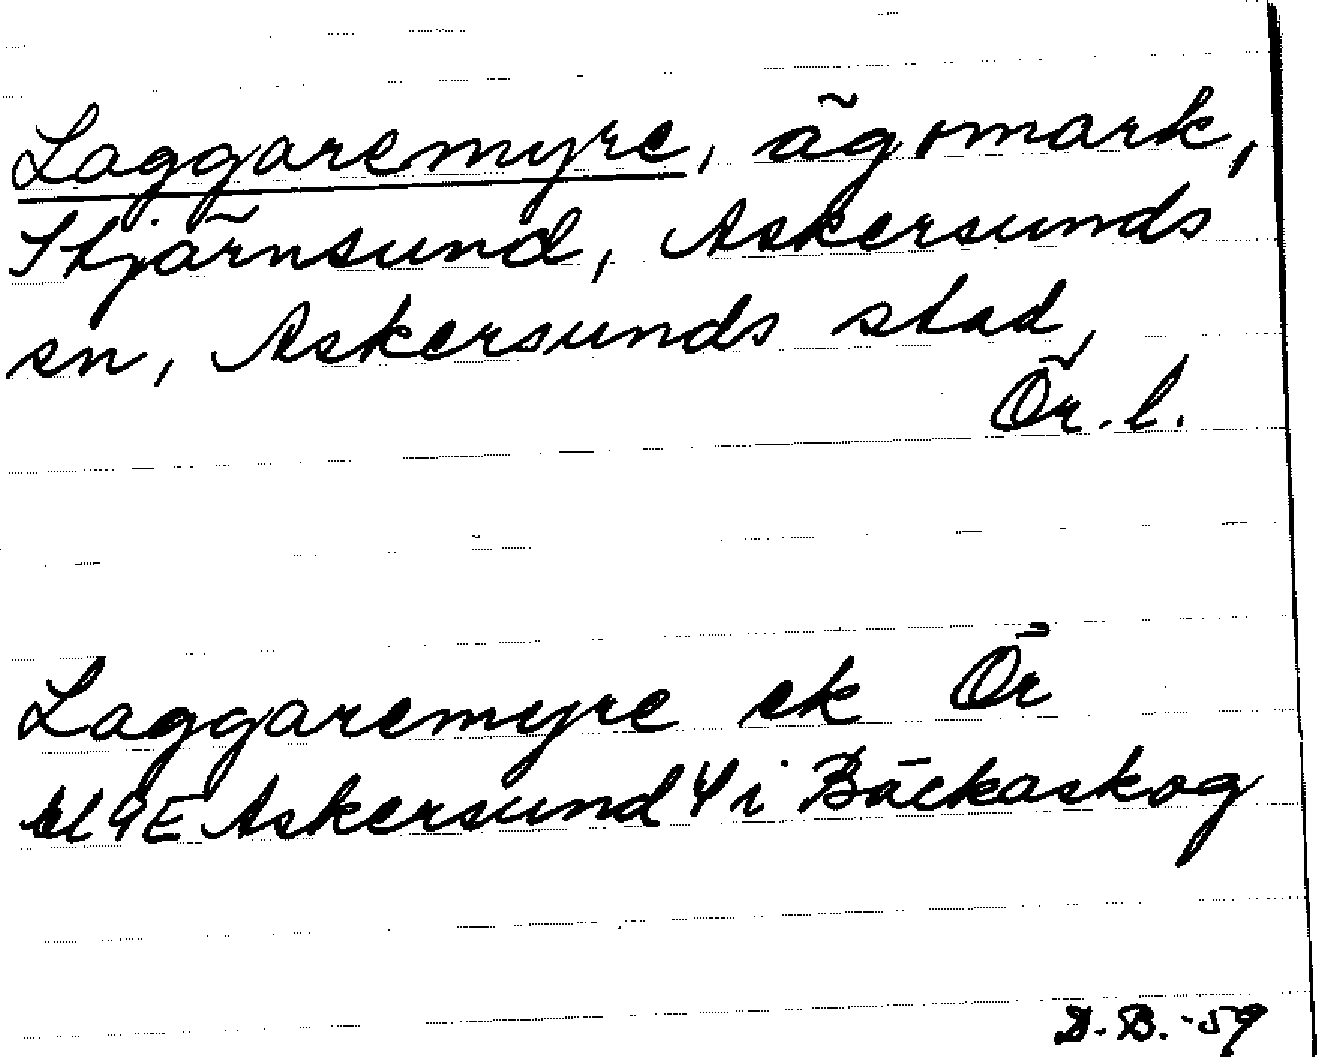 Laggaremyre, ägomark,
Stjärnsund, Askersunds
sn, Askersunds stad,
Ör. l.
Laggaremyre ek Ör
9E Askersund 4 i Bäckaskog
D.B. -59